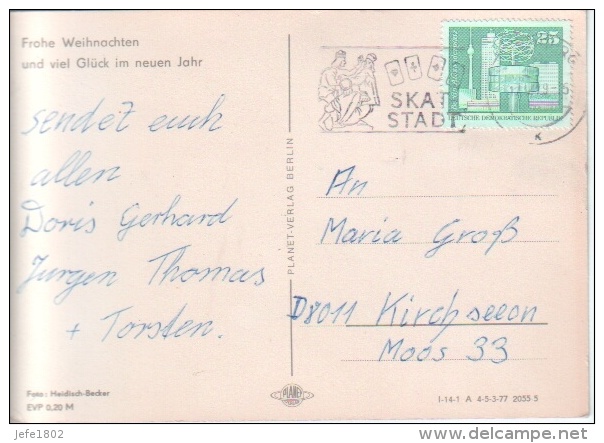 Frohe Weihnachten
und viel Glück im neuen Jahr
sendet euch
allen
Doris Gerhard
Jürgen Thomas
+ Torsten.
Foto: Heidisch-Becker
EVP 0,20 M
PLANET-VERLAG BERLIN
PLANET
SKAT
STADT
25
DEUTSCHE DEMOKRATISCHE REPUBLIK
An
Maria Groß
D8011 Kirchseeon
Moos 33
I-14-1 A 4-5-3-77 2055 5
jefe1802
www.delcampe.net